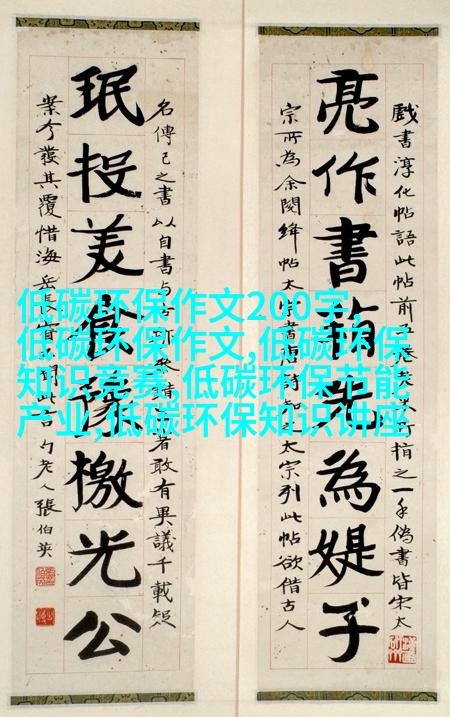 戲書淳化帖語此帖前可指之一手偽書皆宋太
亮作書為媞子
宗所為余閱絳帖太宗書太宗列此帖欲借古人
名傳己之書以自書与者敢有異議千載疑
珉投美豫檄光公
案今發其覆惜海岳長此老人張伯英
低碳环保作文200字,
低碳环保作文,低碳环保
知识竞赛,低碳环保节能
产业,低碳环保知识讲座